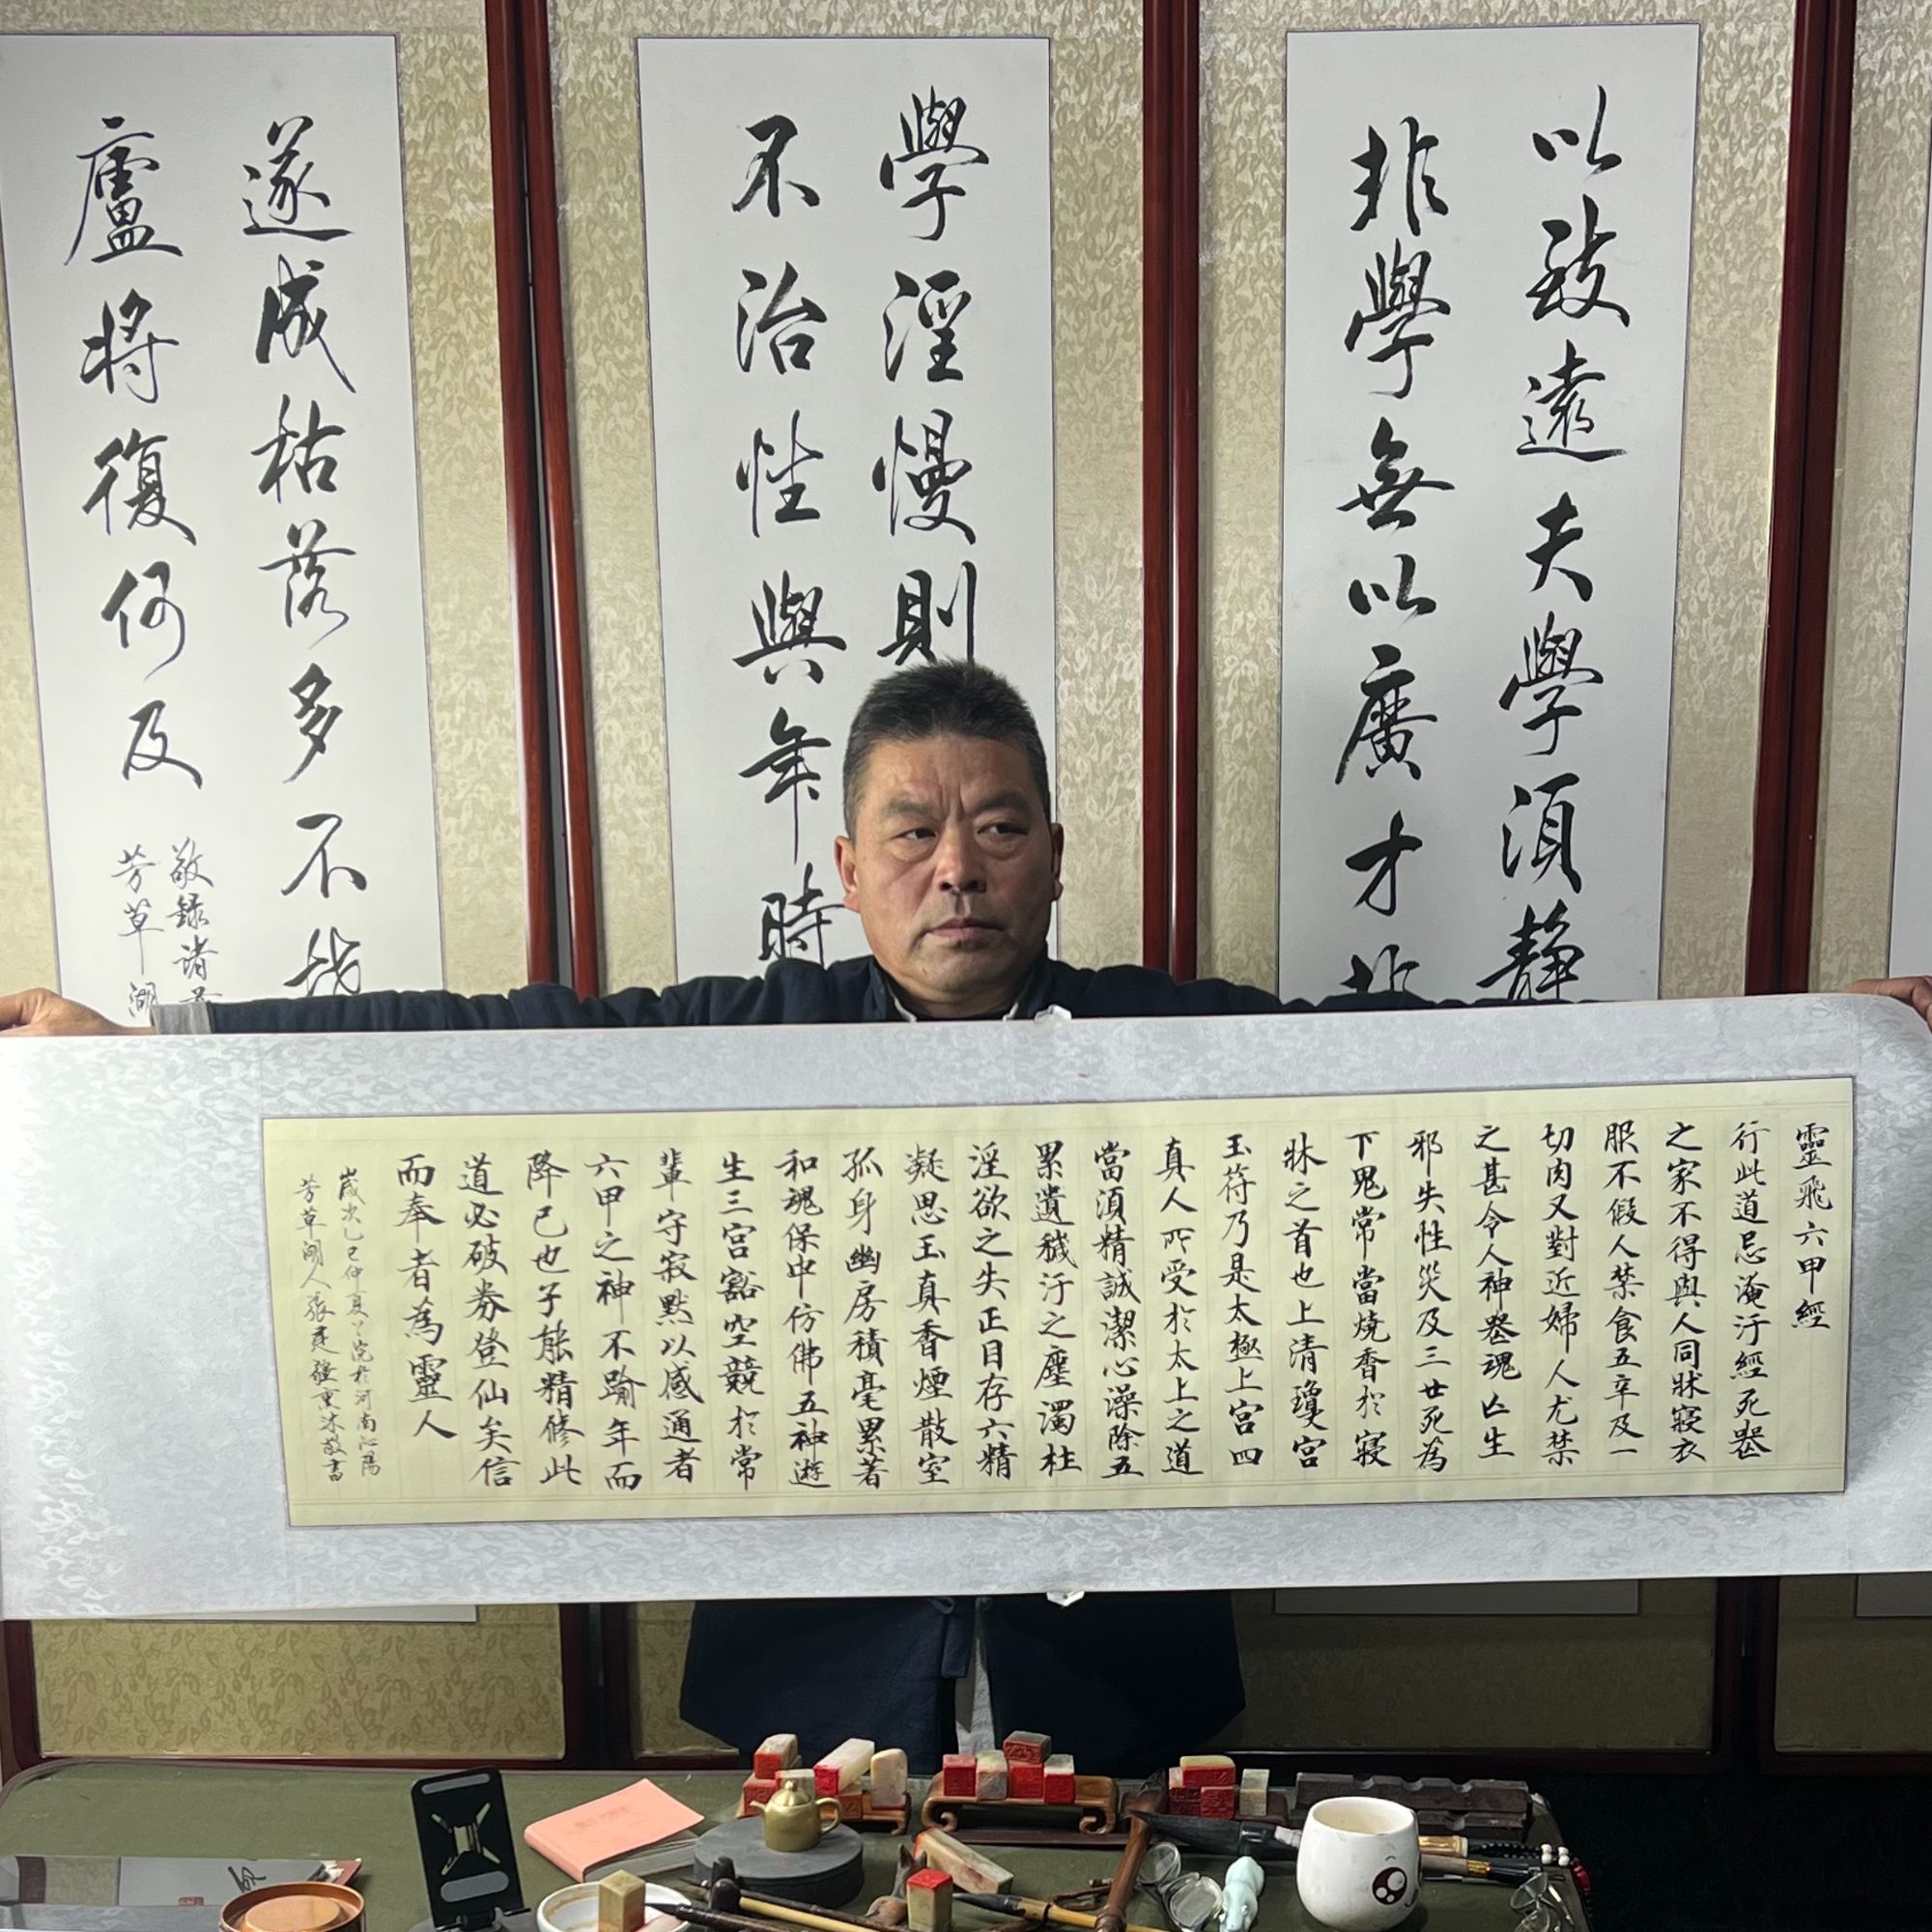 以致遠夫學須靜
非學無以廣才非
學淫慢則
不治性與年時
遂成枯落多不
廬將復何及
敬録诸
芳草湖
靈飛六甲經
行此道忌淹汙經死喪
之家不得與人同牀寢衣
服不假人禁食五辛及一
切肉又對近婦人尤禁
之甚令人神喪魂亡生
邪失性災及三世死為
下鬼常當燒香於寢
牀之首也上清瓊宮
玉符乃是太極上宮四
真人所受於太上之道
當須精誠潔心澡除五
累遺穢汙之塵濁杜
淫欲之失正目存六精
凝思玉真香煙散室
孤身幽房積毫累著
和魂保中仿佛五神遊
生三宮豁空競於常
輩守寂默以感通者
六甲之神不踰年而
降已也子能精修此
道必破券登仙矣信
而奉者為靈人
歲次乙巳仲夏於河南沁陽
芳草湖人張敬書